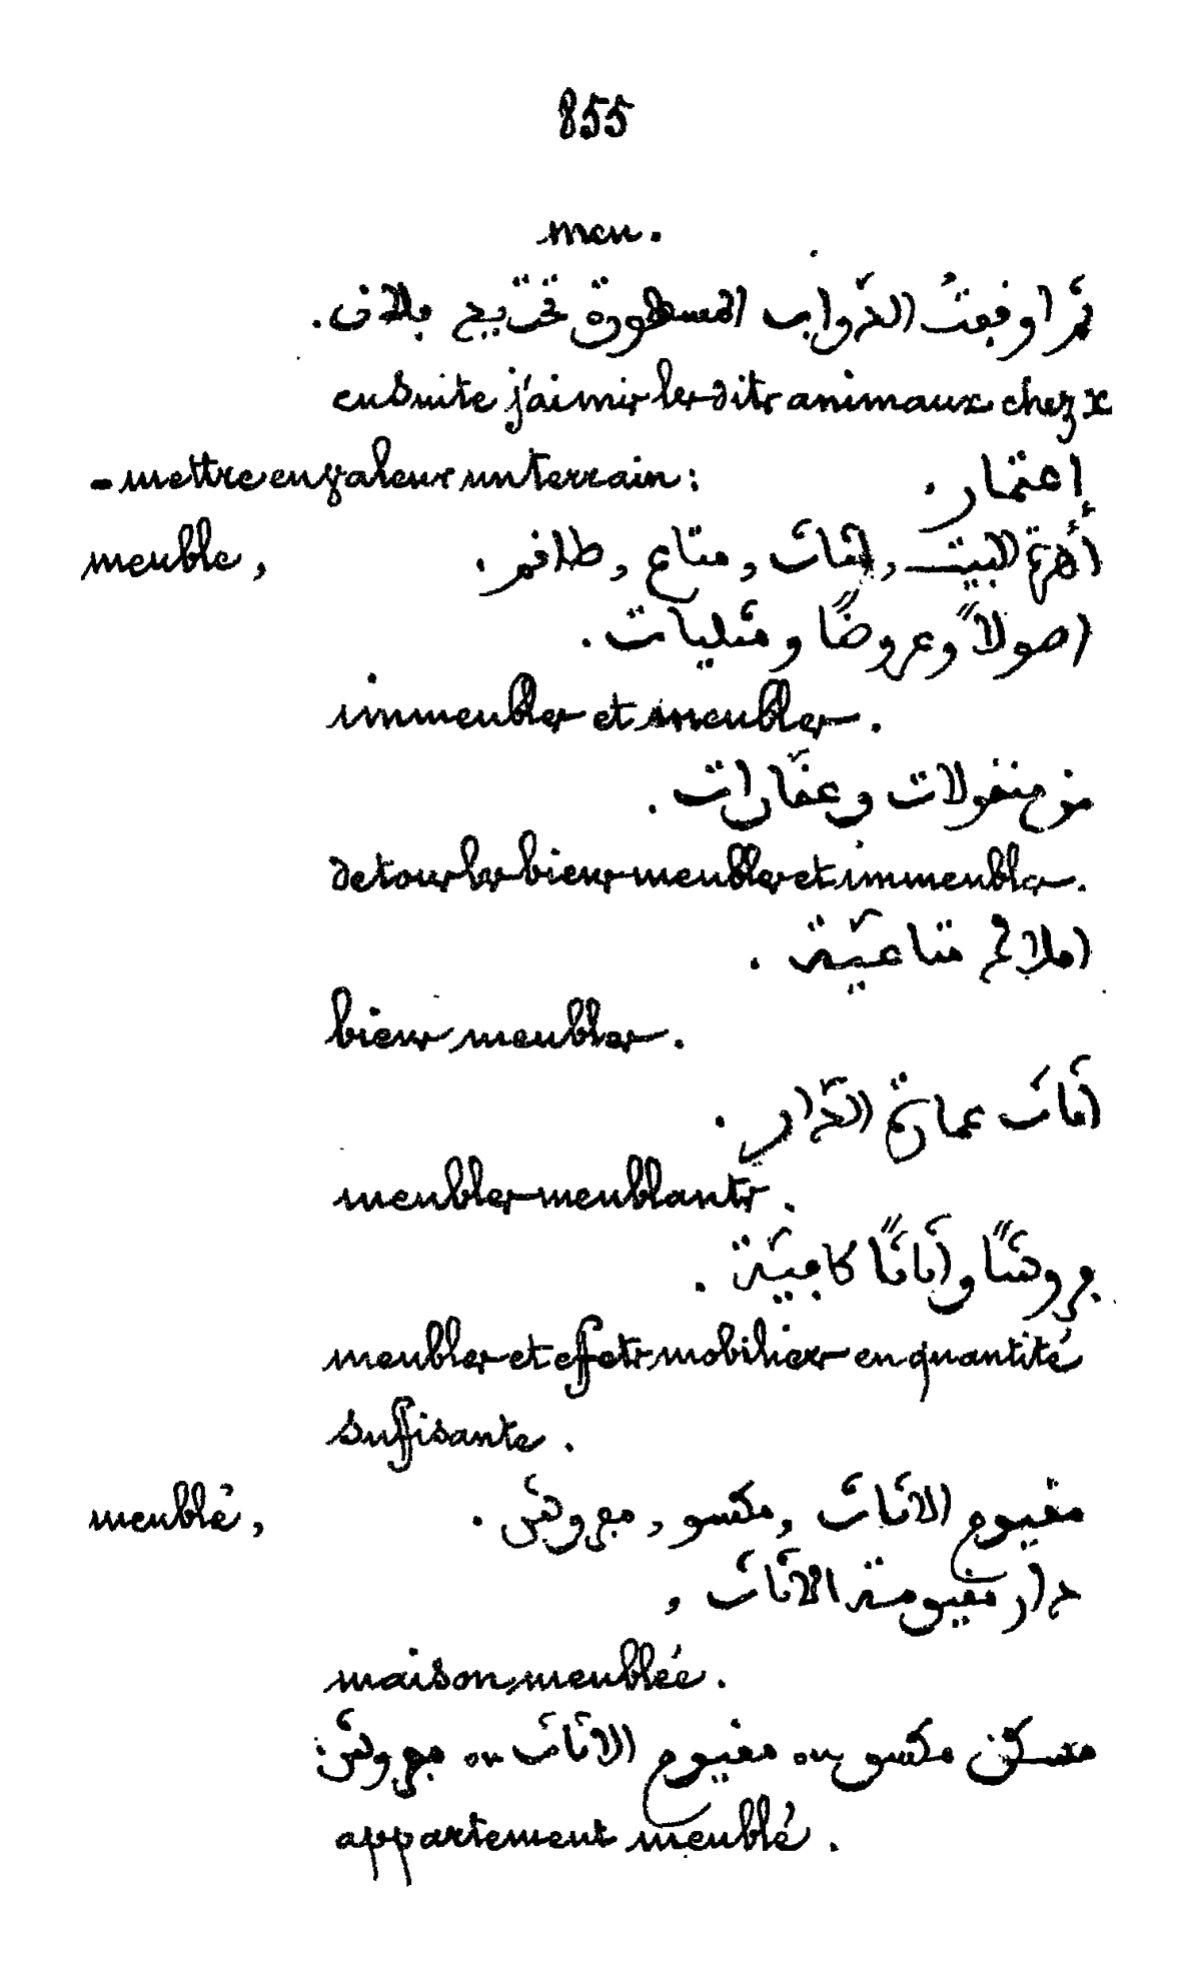 855
meu.
ثمّ اوقفتُ الدّواب المسطورة تحت يد فلان.
ensuite j'ai mis les dits animaux chez x
- mettre en valeur un terrain : إعتمار.
meuble, أهرة البيت, اثاث, متاع, طاقم.
اصولاً وعروضًا ومثليات.
immeubles et meubles.
من منقولات وعقّارات.
de tous les biens meubles et immeubles.
املاك متاعيّة.
biens meubles.
اثاث عمارة الدّار.
meubles meublants.
فروشًا واثاثًا كافيّة.
meubles et effets mobiliers en quantité
suffisante.
meublé, مقيوم الاثاث, مكسو, مفروش.
دار مقيومة الاثاث,
maison meublée.
مسكن مكسو ou مقيوم الاثاث ou مفروش:
appartement meublé.